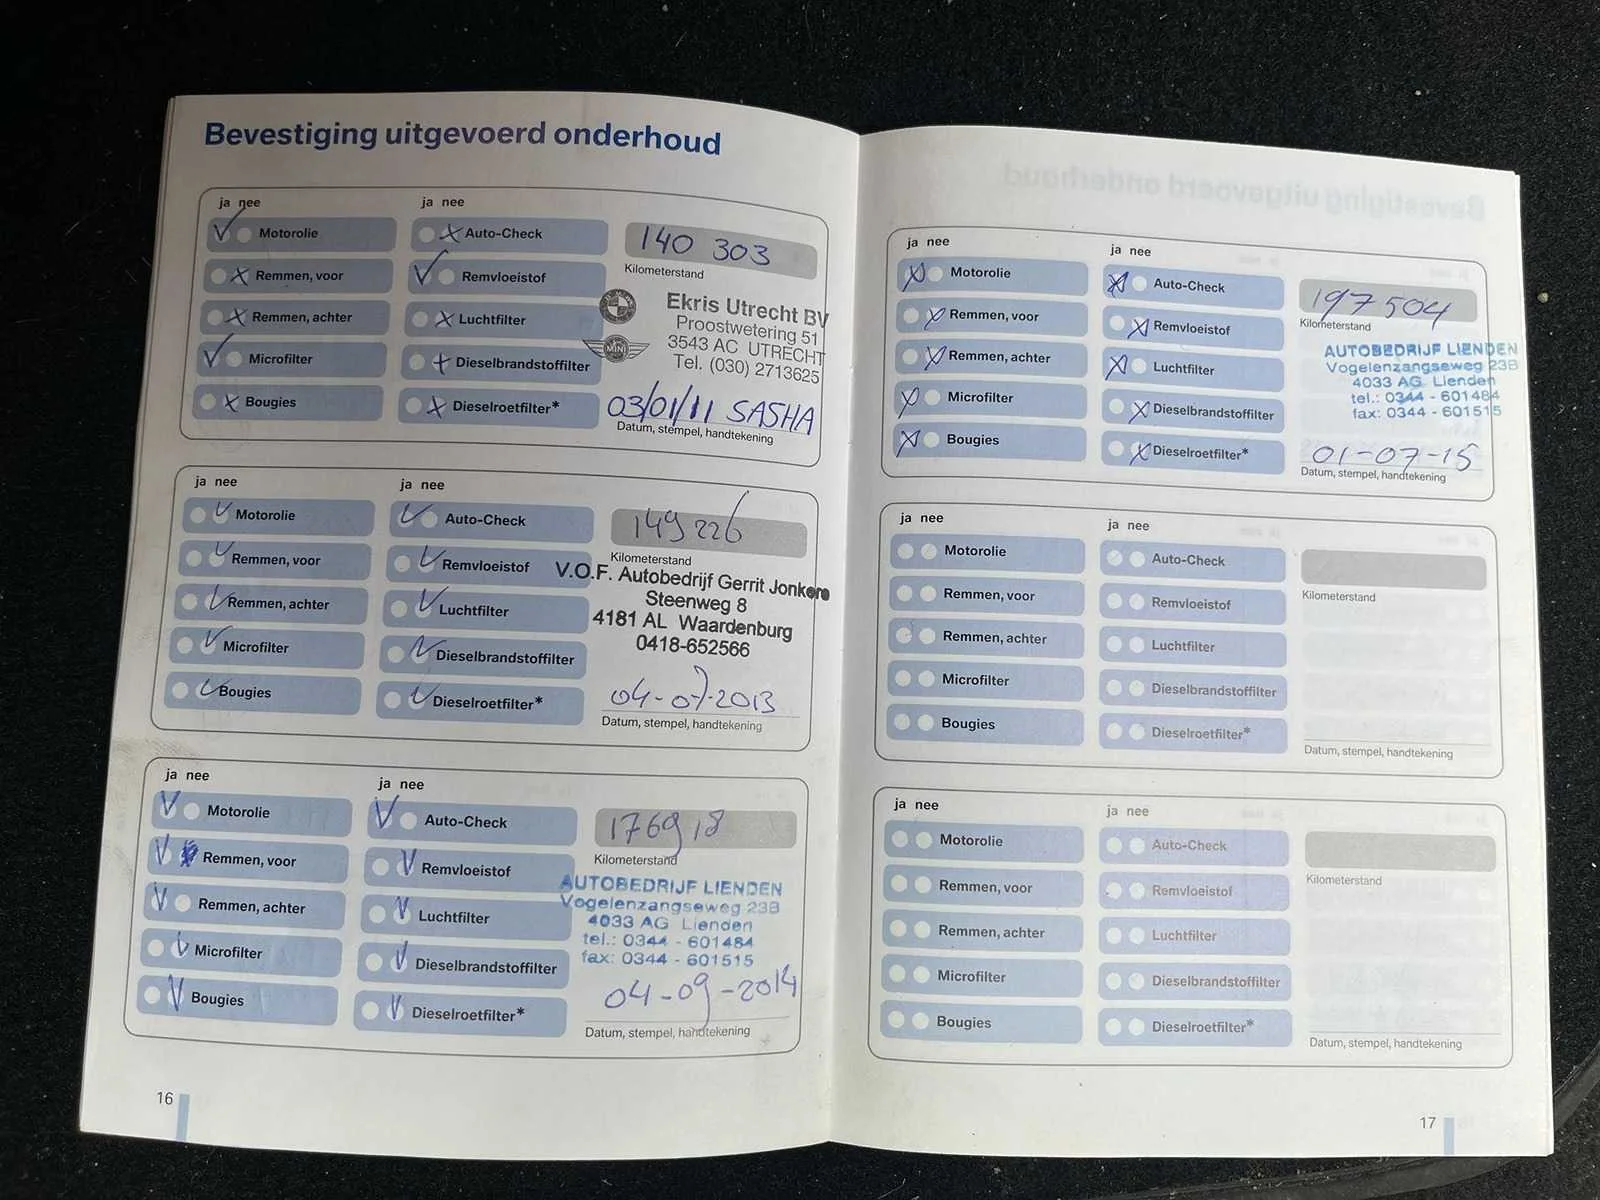 Bevestiging uitgevoerd onderhoud
ja nee
ja nee
Motorolie
Auto-Check
140 303
Remmen, voor
Remvloeistof
Kilometerstand
Remmen, achter
Luchtfilter
Ekris Utrecht BV
Proostwetering 51
3543 AC UTRECHT
Tel. (030) 2713625
MINI
Microfilter
Dieselbrandstoffilter
Bougies
Dieselroetfilter*
03/01/11 SASHA
Datum, stempel, handtekening
ja nee
ja nee
Motorolie
Auto-Check
149 226
Remmen, voor
Remvloeistof
Kilometerstand
Remmen, achter
Luchtfilter
V.O.F. Autobedrijf Gerrit Jonkers
Steenweg 8
4181 AL Waardenburg
0418-652566
Microfilter
Dieselbrandstoffilter
Bougies
Dieselroetfilter*
04-07-2013
Datum, stempel, handtekening
ja nee
ja nee
Motorolie
Auto-Check
176918
Remmen, voor
Remvloeistof
Kilometerstand
Remmen, achter
Luchtfilter
AUTOBEDRIJF LIENDEN
Vogelenzangseweg 23B
4033 AG Lienden
tel.: 0344 - 601484
fax: 0344 - 601515
Microfilter
Dieselbrandstoffilter
Bougies
Dieselroetfilter*
04-09-2014
Datum, stempel, handtekening
16
ja nee
ja nee
Motorolie
Auto-Check
197504
Remmen, voor
Remvloeistof
Kilometerstand
Remmen, achter
Luchtfilter
AUTOBEDRIJF LIENDEN
Vogelenzangseweg 23B
4033 AG Lienden
tel.: 0344 - 601484
fax: 0344 - 601515
Microfilter
Dieselbrandstoffilter
Bougies
Dieselroetfilter*
01-07-15
Datum, stempel, handtekening
ja nee
ja nee
Motorolie
Auto-Check
Remmen, voor
Remvloeistof
Kilometerstand
Remmen, achter
Luchtfilter
Microfilter
Dieselbrandstoffilter
Bougies
Dieselroetfilter*
Datum, stempel, handtekening
ja nee
ja nee
Motorolie
Auto-Check
Remmen, voor
Remvloeistof
Kilometerstand
Remmen, achter
Luchtfilter
Microfilter
Dieselbrandstoffilter
Bougies
Dieselroetfilter*
Datum, stempel, handtekening
17